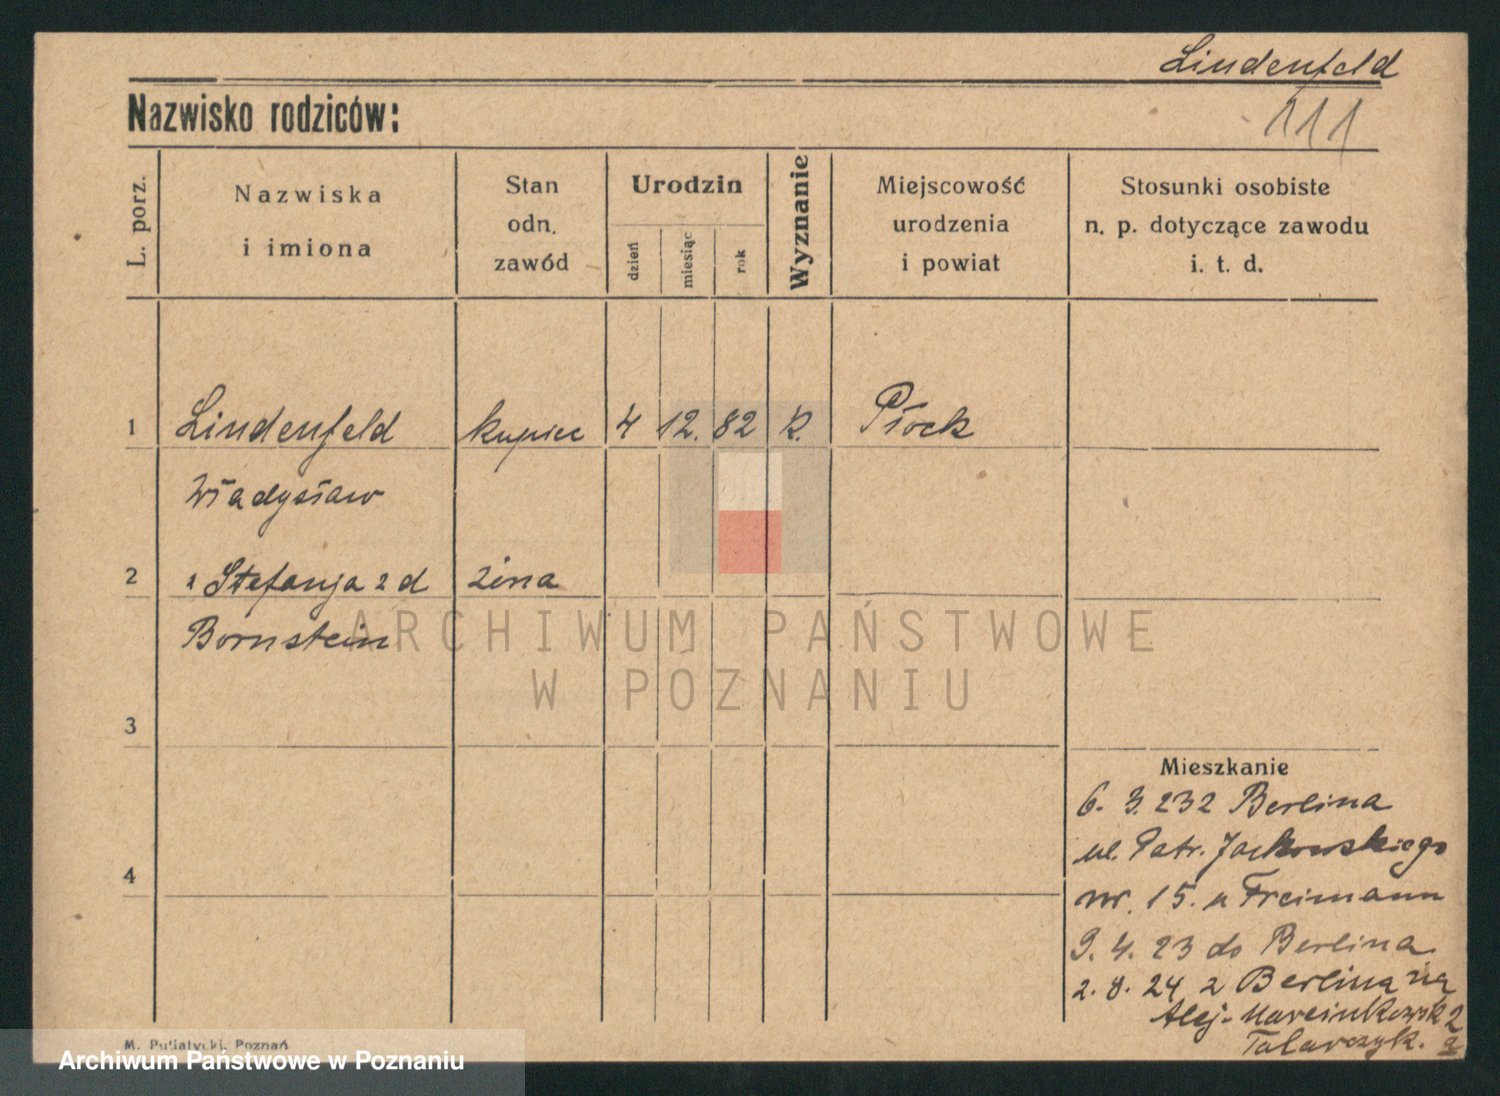 Lindenfeld
Nazwisko rodziców:
111
L. porz.
Nazwiska
i imiona
Stan
odn.
zawód
Urodzin
dzień
miesiąc
rok
Wyznanie
Miejscowość
urodzenia
i powiat
Stosunki osobiste
n. p. dotyczące zawodu
i. t. d.
1 Lindenfeld kupiec 4 12. 82 Płock
Władysław
2 Stefanja z d żona
Bornstein
ARCHIWUM PAŃSTWOWE
W POZNANIU
3
Mieszkanie
6. 3. 23 z Berlina
ul. Patr. Jackowskiego
4
nr. 15. u Freimann
9. 4. 23 do Berlina
2. 8. 24 z Berlina na
Alej. Marcinkowsk
Talarczyk.
M. Putiatycki, Poznań
Archiwum Państwowe w Poznaniu